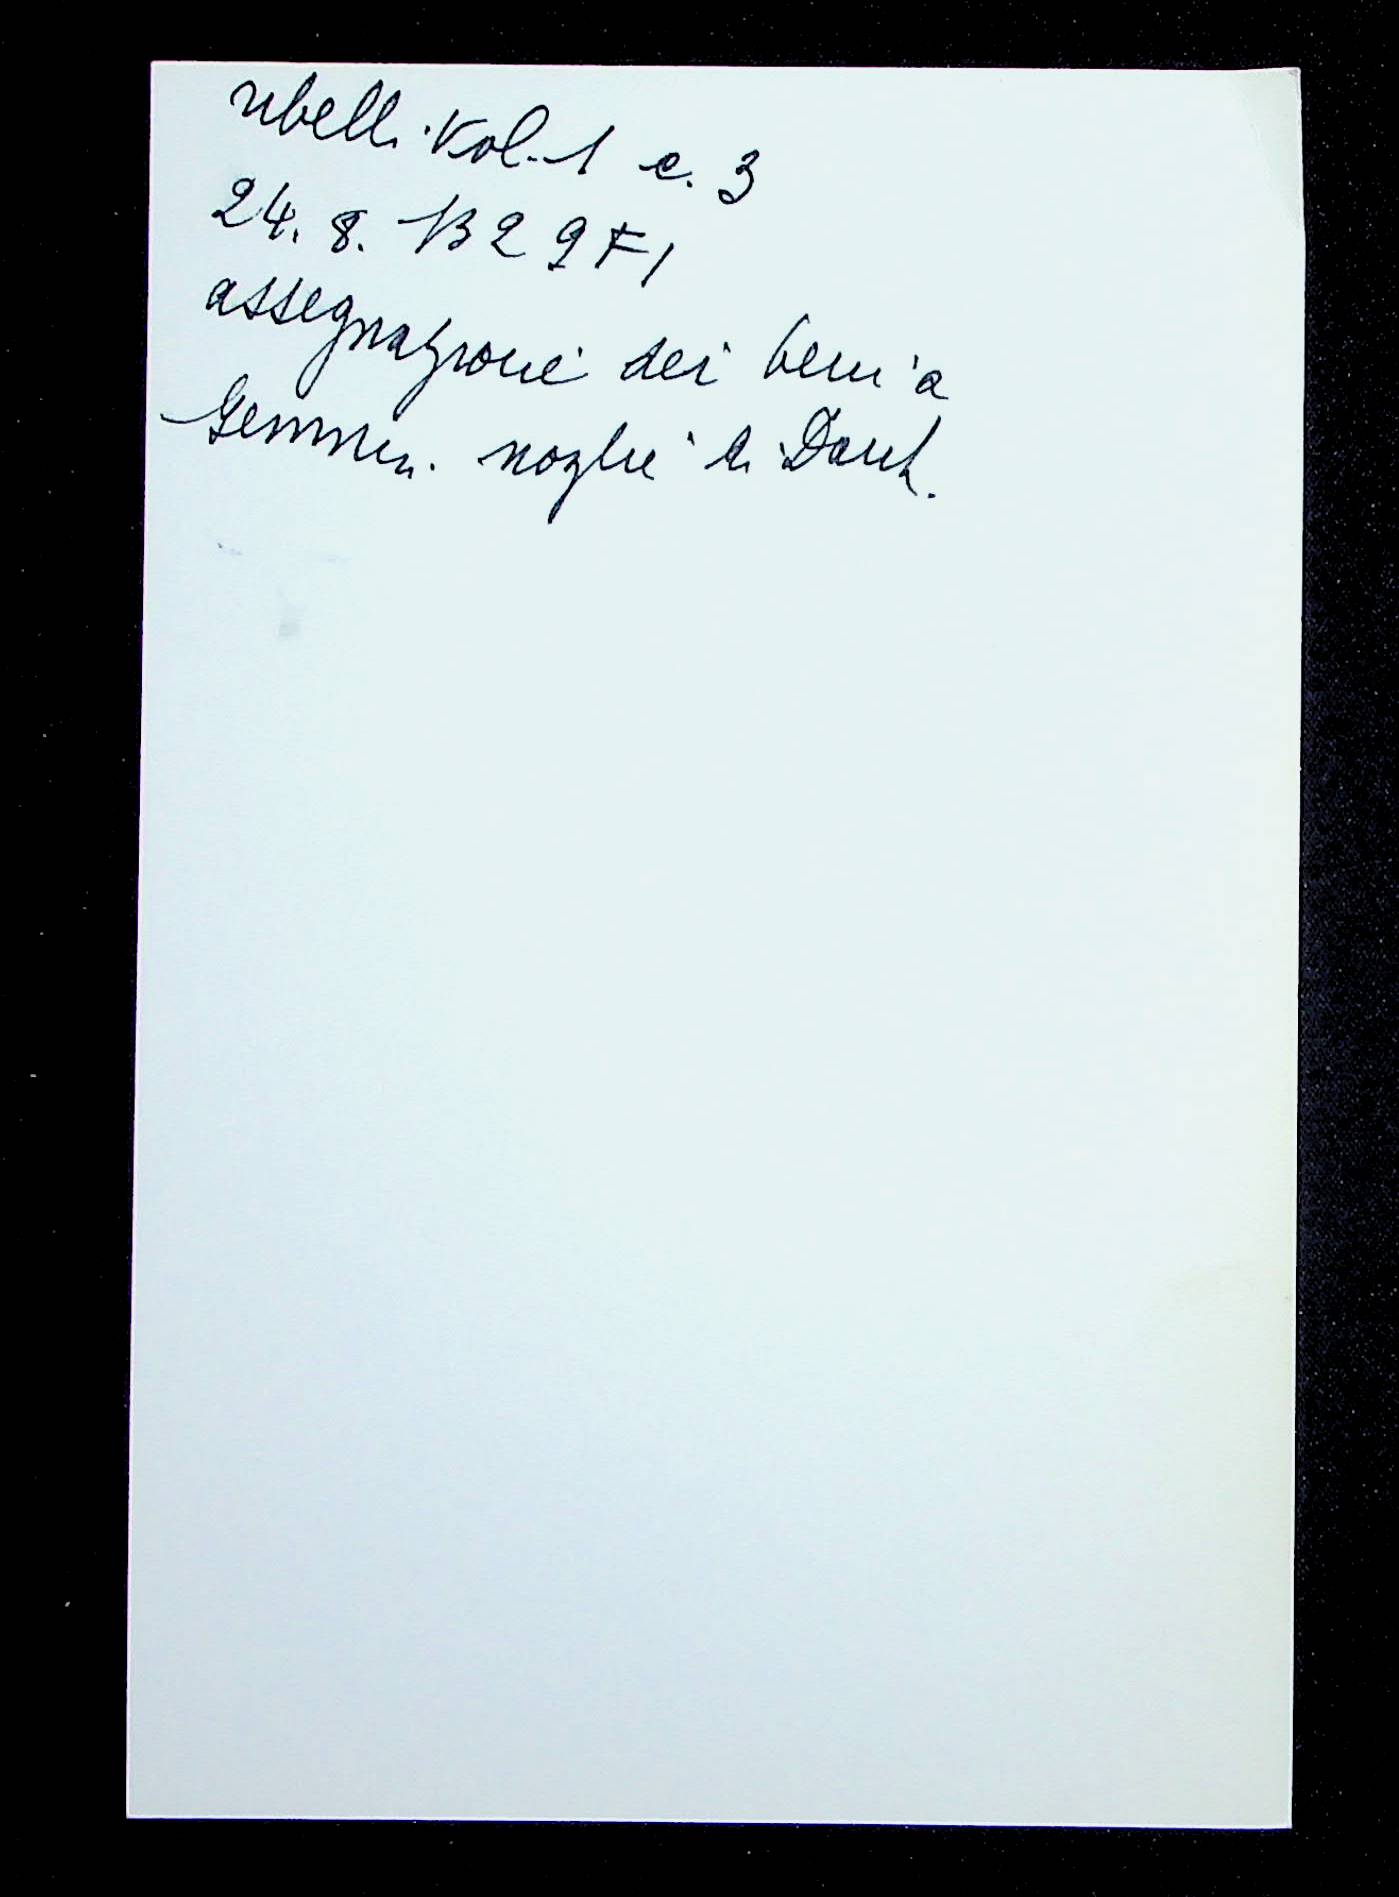 ribelli Vol. 1 c. 3
24. 8. 1329 FI
assegnazione dei beni a
Gemma moglie di Dante.